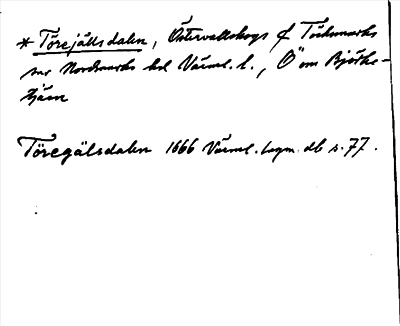 * Törejällsdalen, Östervallskogs f Töcksmarks
sn Nordmarks hd Värml. l., Ö om Björke-
tjärn
Töregälsdalen 1666 Värml. lagm. db s. 77.